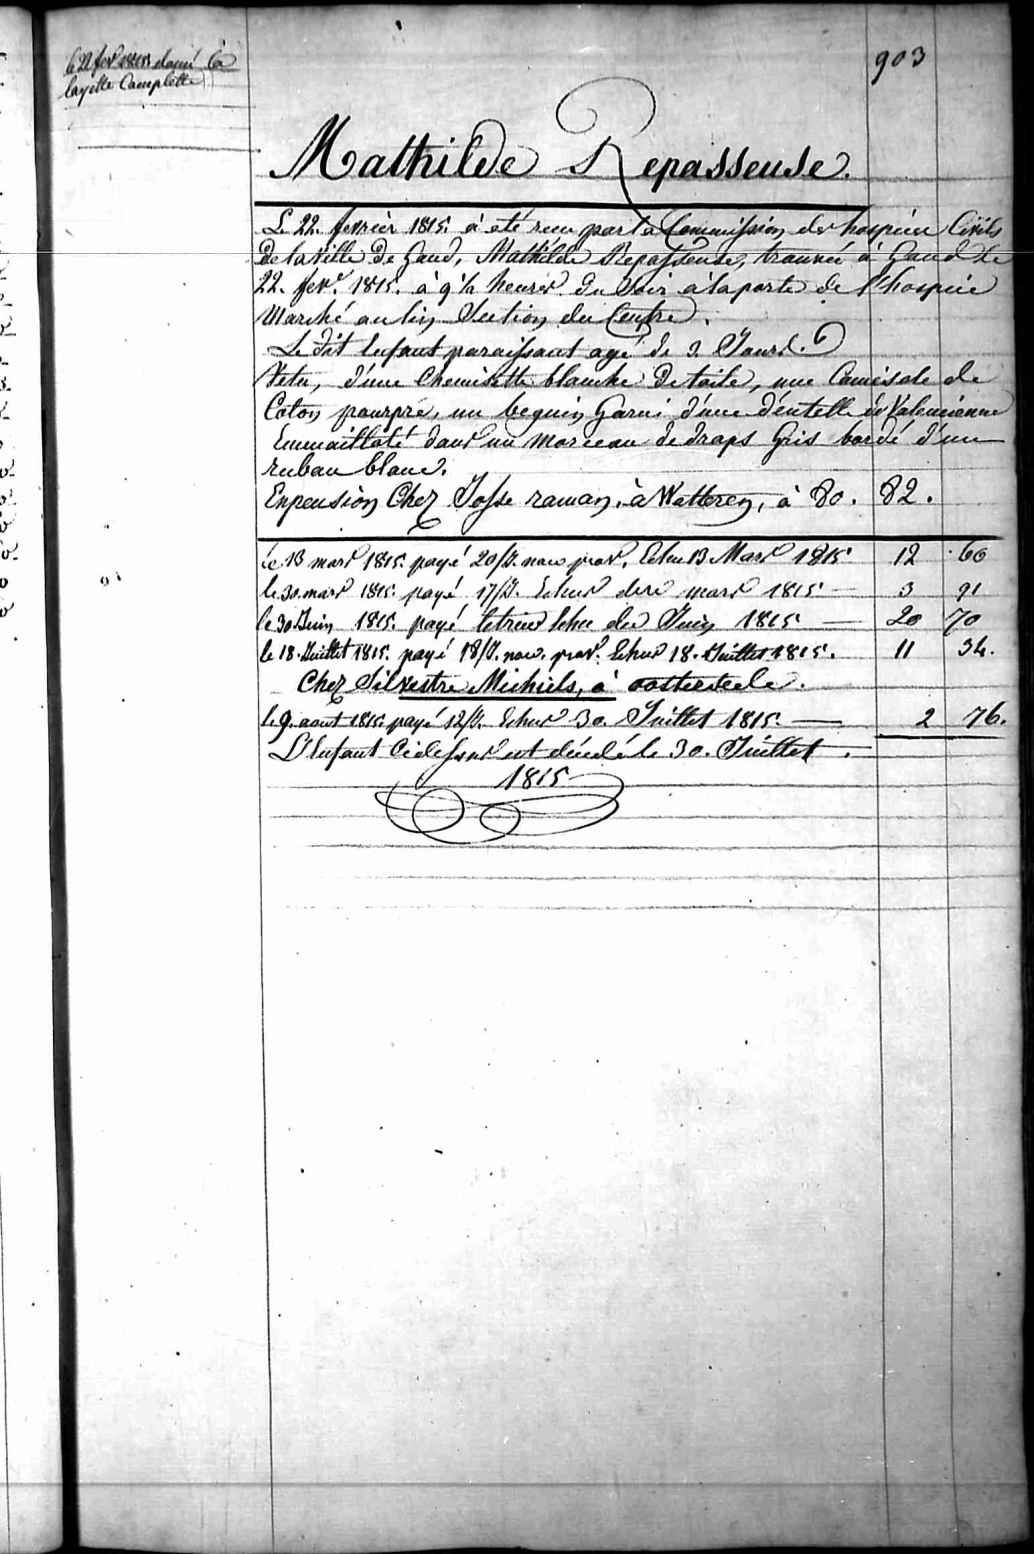 903
le 22 fevr 1815 donné la
layette Complette
Mathilde Repasseuse.
Le 22. fevrier 1815. à eté recu par la Commission des hospices Civils
de la ville de Gand, Mathilde Repasseuse, trouvée à Gand le
22. fevr. 1815. à 9 ½ heures du soir à la porte de l'hospice
Marché au lin Section du Centre.
Le dit Enfant paraissant agé de 2 Jours.
Vetu, d'une Chemisette blanche de toile, une Camisole de
Coton pourpre, un beguin Garni d'une dentelle de Valencienne
Emmailloté dans un morceau de draps Gris bordé d'un
ruban blanc.
Enpension Chez Josse raman, à Watteren, à 80. 82.
le 13 mars 1815. payé 20/J. nou prov. Echu 13 Mars 1815 12 60
le 30 mars 1815. payé 17/J. Echus dere mars 1815 — 3 91
le 30 Juin 1815. payé letrims Echu der Juin 1815 — 20 70
le 18. Juillet 1815. payé 18/J. nou. prov. Echus 18. Juillet 1815. 11 34.
Chez Silvestre Michiels, à oosterseele.
le 9. aout 1815. payé 12/J. Echus 30. Juillet 1815. — 2 76.
L'Enfant Cidessus est décédé le 30. Juillet.
1815